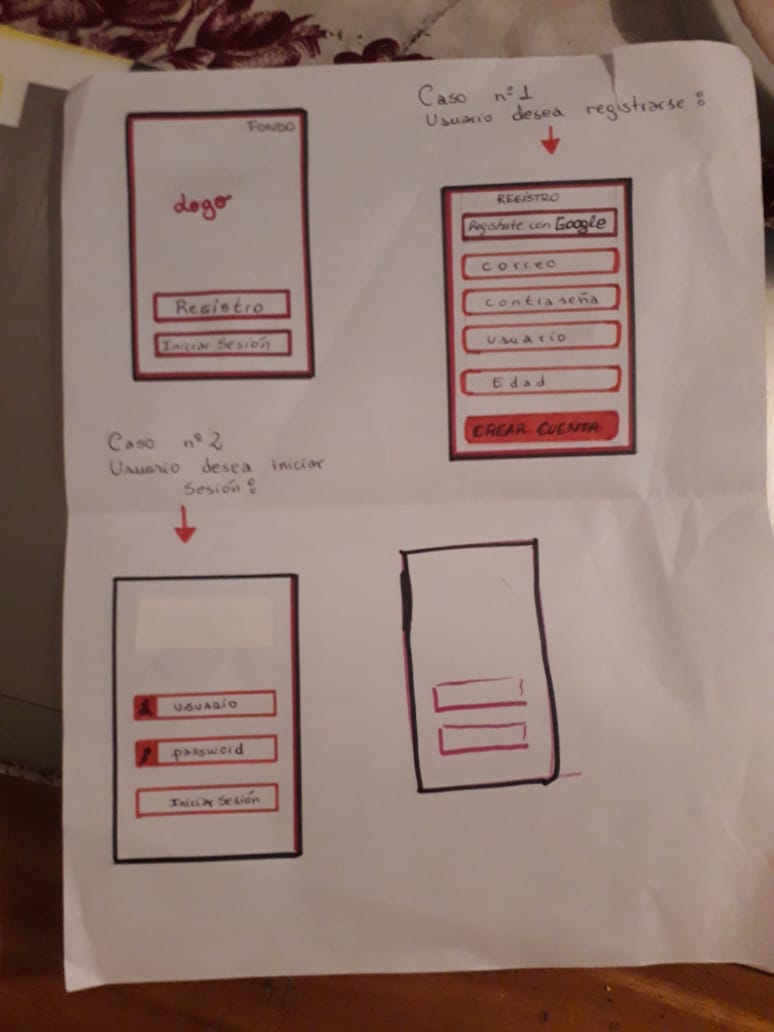 FONDO
Logo
Registro
Iniciar Sesión
Caso nº1
Usuario desea registrarse:
REGISTRO
Registrate con Google
Correo
Contraseña
Usuario
Edad
CREAR CUENTA
Caso nº2
Usuario desea iniciar
Sesión:
USUARIO
password
Iniciar Sesión